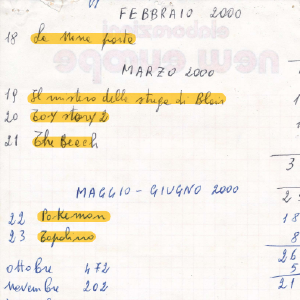 VI
FEBBRAIO 2000
18 Le nove porte
MARZO 2000
19 Il mistero della strega di Blair
20 Toy story 2
21 The Beach
3
MAGGIO - GIUGNO 2000
22 Pokemon 18
23 Topolino 8
26
ottobre 472 5
novembre 202 21